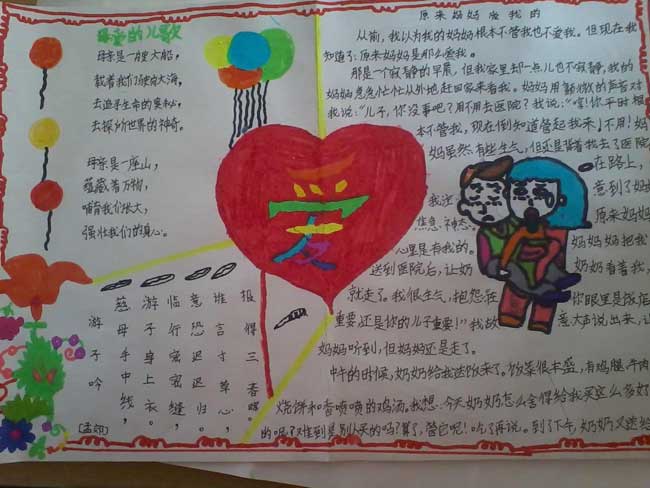 母亲是一艘大船，
载着我们驶向大海，
去追寻生命的奥秘，
去探听世界的神奇。
母亲是一座山，
蕴藏着万物，
哺育我们长大，
强壮我们的身心。
游子吟
慈母手中线，
游子身上衣。
临行密密缝，
意恐迟迟归。
谁言寸草心，
报得三春晖。
爱
原来妈妈爱我的
从前，我以为我的妈妈根本不管我也不爱我。但现在我
知道了：原来妈妈是那么爱我。
那是一个寂静的早晨，但我家里却一点儿也不寂静，我的
妈妈急急忙忙从外地赶回家来看我。妈妈用的声音对
我说：“儿子，你没事吧？用不用去医院？”我说：“你平时根
本不管我，现在倒知道管起我来，不用！妈
妈虽然有些生气，但还是背着我去了医院
在路上，
我
意到了妈
焦急神态。
原来妈妈
心里是有我的。
妈妈把我
送到医院后，让奶
奶看着我，
就走了。我很生气，抱怨
你眼里是
重要还是你的儿子重要！”我故
意大声说出来，让
妈妈听到，但妈妈还是走了。
中午的时候，奶奶给我送饭来了。饭菜很丰盛，有鸡腿、牛肉
烧饼和香喷喷的鸡汤。我想：今天奶奶怎么舍得给我买这么多好
的呢？难到是别人买的吗？算了，管它呢！吃了再说。到了下午，奶奶又送